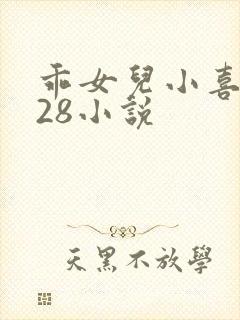 乖女兒小喜
28小說
天黑不放學